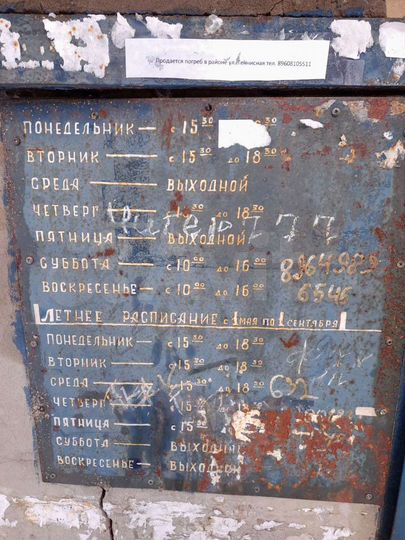 Продается погреб в районе ул. Теннисная тел. 89608105511
ПОНЕДЕЛЬНИК — с 15 30
ВТОРНИК — с 15 30 до 18 30
СРЕДА — ВЫХОДНОЙ
ЧЕТВЕРГ 30 до 18 30
ПЯТНИЦА — ВЫХОДНОЙ
СУББОТА — с 10 00 до 16 00
ВОСКРЕСЕНЬЕ — с 10 00 до 16 00
6546
ЛЕТНЕЕ РАСПИСАНИЕ с 1 МАЯ ПО 1 СЕНТЯБРЯ
ПОНЕДЕЛЬНИК — с 15 30 до 18 30
ВТОРНИК — с 15 30 до 18 30
СРЕДА — с 15 30 до 18 30
ЧЕТВЕРГ с 15 до 18
ПЯТНИЦА — с 15
СУББОТА — ВЫХОДНОЙ
ВОСКРЕСЕНЬЕ — ВЫХОДНОЙ